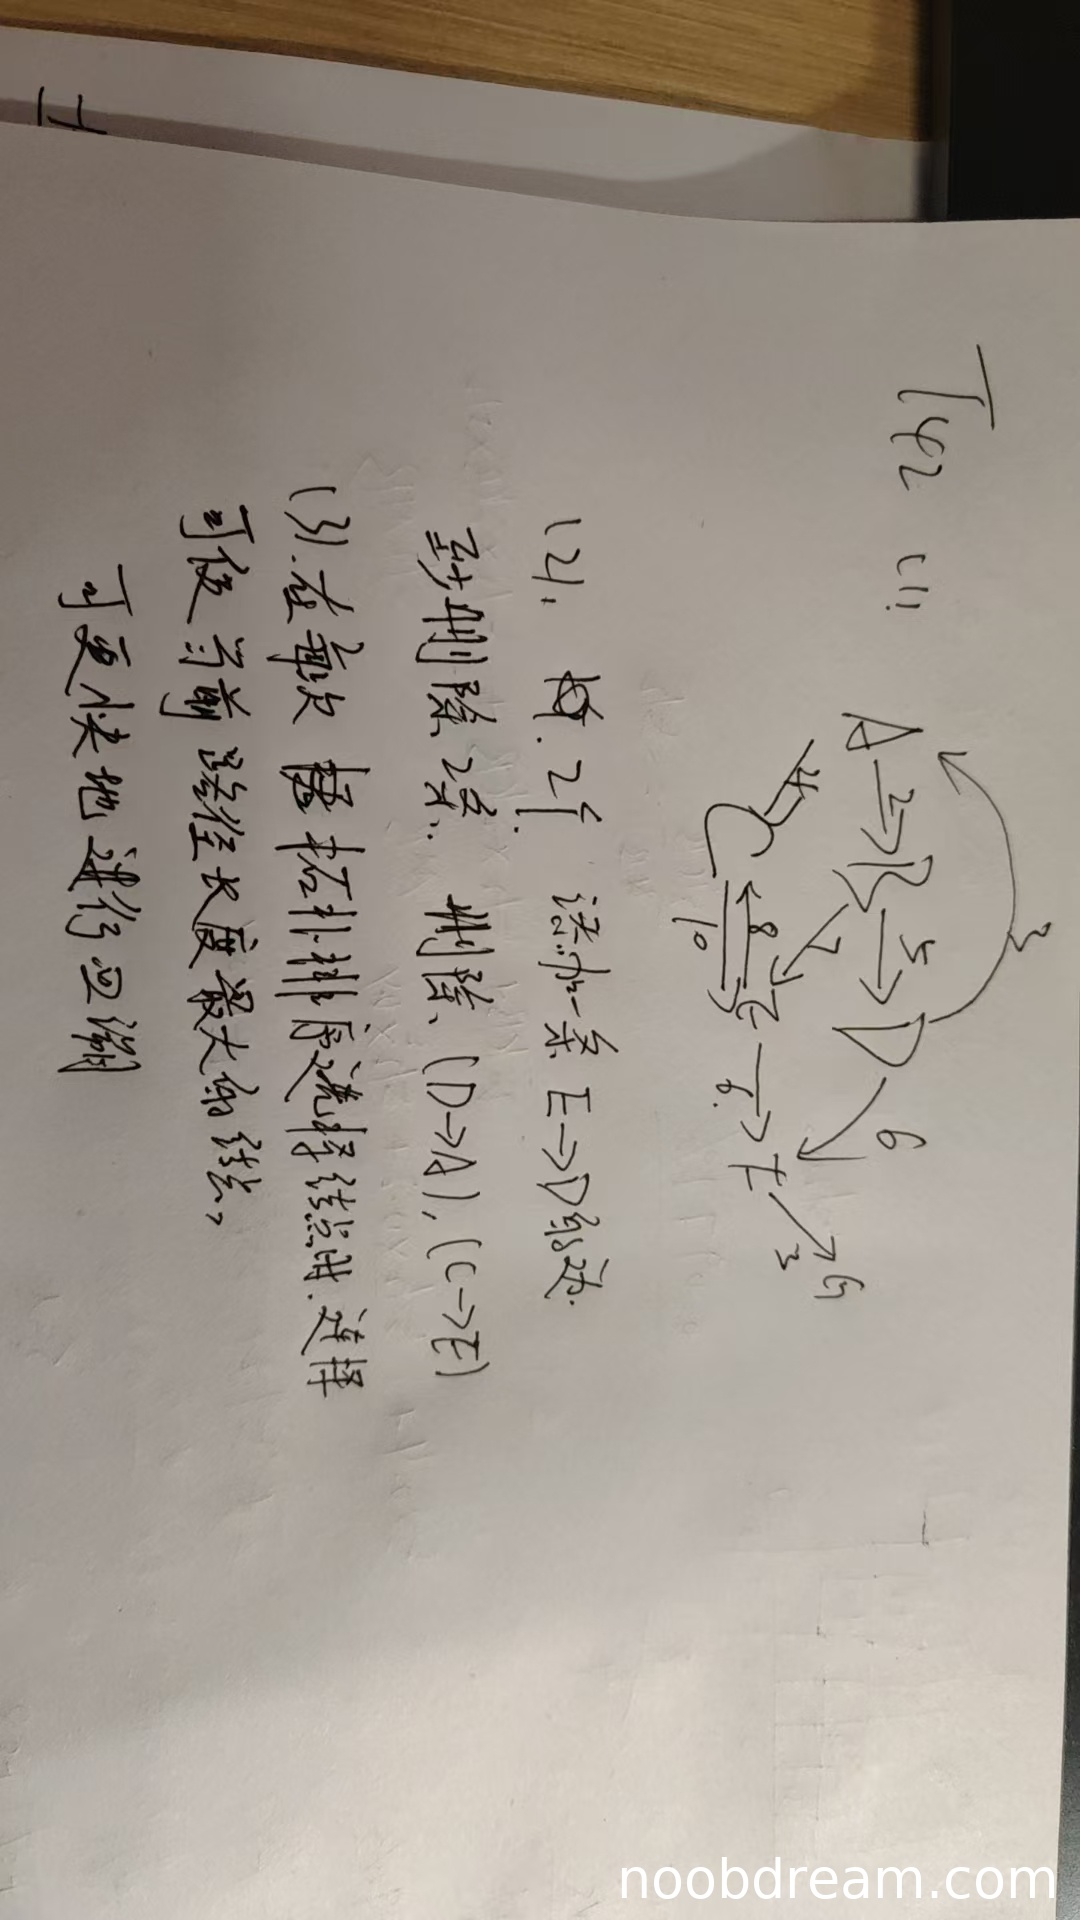 T42 (1).
3
A 2 B 5 D 6
4 7
C 8 E 6 F 3 G
10
(2). 2个. 添加一条 E→D的边.
至少删除2条. 删除 (D→A), (C→E)
(3). 在每次 拓扑排序选择结点时. 选择
可使当前路径长度最大的结点,
可更快地进行回溯
noobdream.com